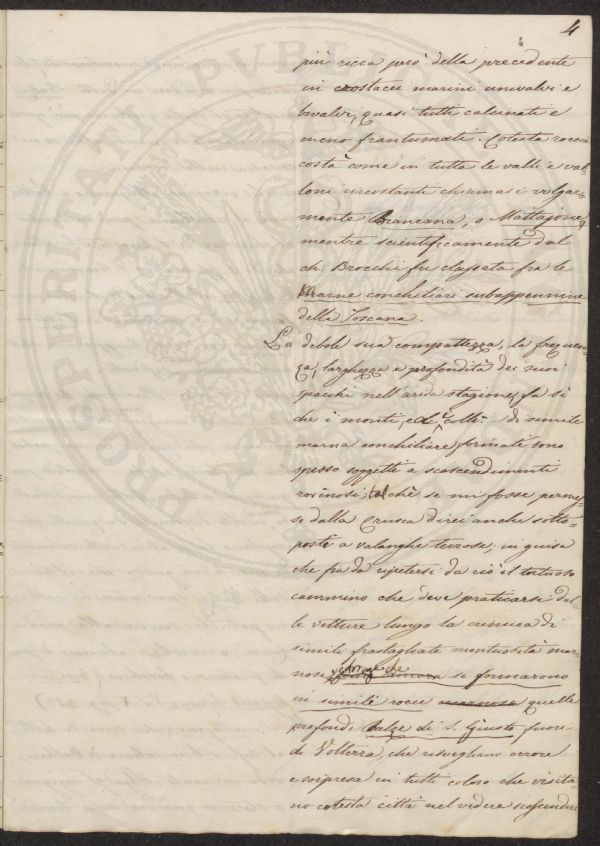 4
più ricca però della precedente
in crostacei marini univalvi e
bivalvi, quasi tutti calcinati e
meno frantumati. Cotesta roccia
costà come in tutte le valli e val=
loni circostanti chiamasi volgar=
mente Biancana, o Mattajone,
mentre scientificamente dal
ch. Brocchi fu classata fra le
Marne conchiliari subappennine
della Toscana.
La debole sua compattezza, la frequen=
za, larghezza e profondità dei suoi
spacchi nell'arida stagione, fa sì
che i monti, e i colli di simile
marna conchiliare formati sono
spesso soggetti a scoscendimenti
rovinosi; talchè se mi fosse permes=
so dalla Crusca direi anche sotto=
poste a valanghe terrose; in guisa
che fra da ripetersi da ciò il tortuoso
cammino che deve praticarsi dal=
le vetture lungo la cresta di
simili frastagliate montuosità mar=
nose che si formarono
in simile rocce marnose quelle
profondi Balze di S. Giusto, fuori
di Volterra, che risvegliano orrore
e sorpresa in tutti coloro che visita=
no cotesta città nel vedere scoscendere
PROSPERITATI PUBLIC